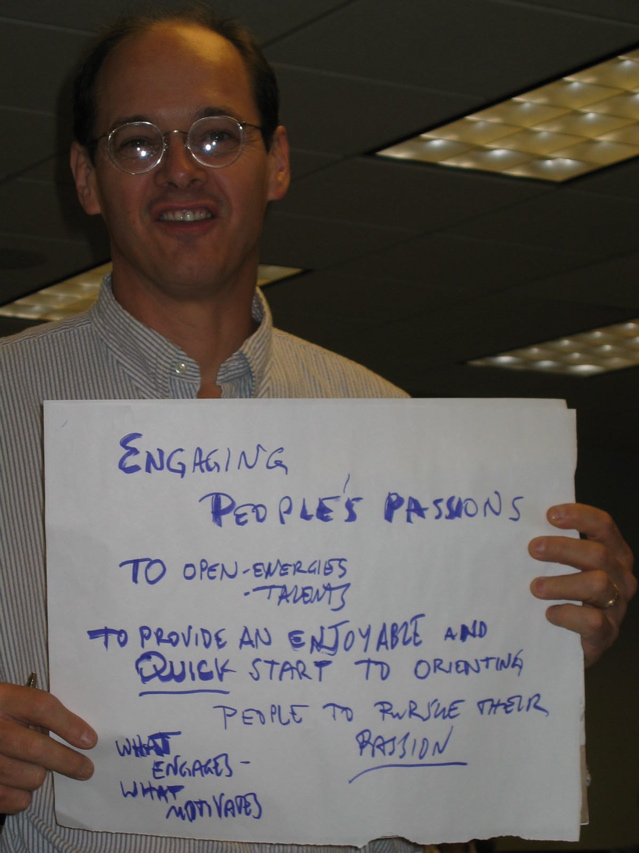 ENGAGING
PEOPLE'S PASSIONS
TO OPEN-ENERGIES
-TALENTS
TO PROVIDE AN ENJOYABLE AND
QUICK START TO ORIENTING
PEOPLE TO PURSUE THEIR
PASSION
WHAT
ENGAGES-
WHAT
MOTIVATES